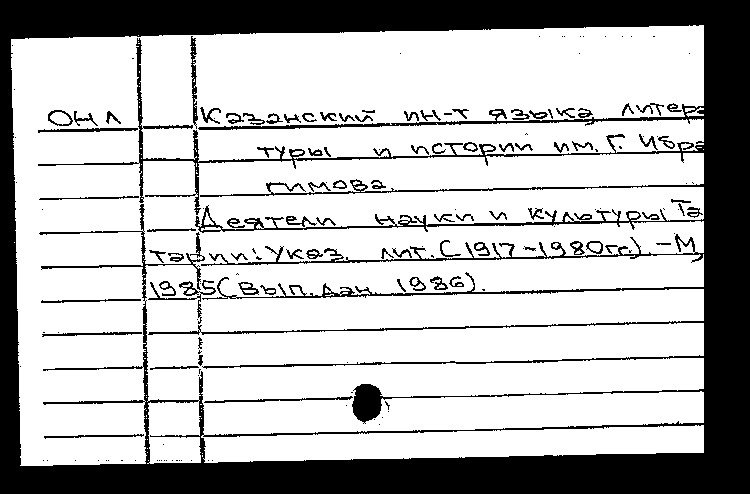 ОНЛ Казанский ин-т языка, литера
туры и истории им. Г. Ибра
гимова.
Деятели науки и культуры Та
тарии: Указ. лит. (1917-1980гг.) - М,
1985(Вып.дан. 1986).